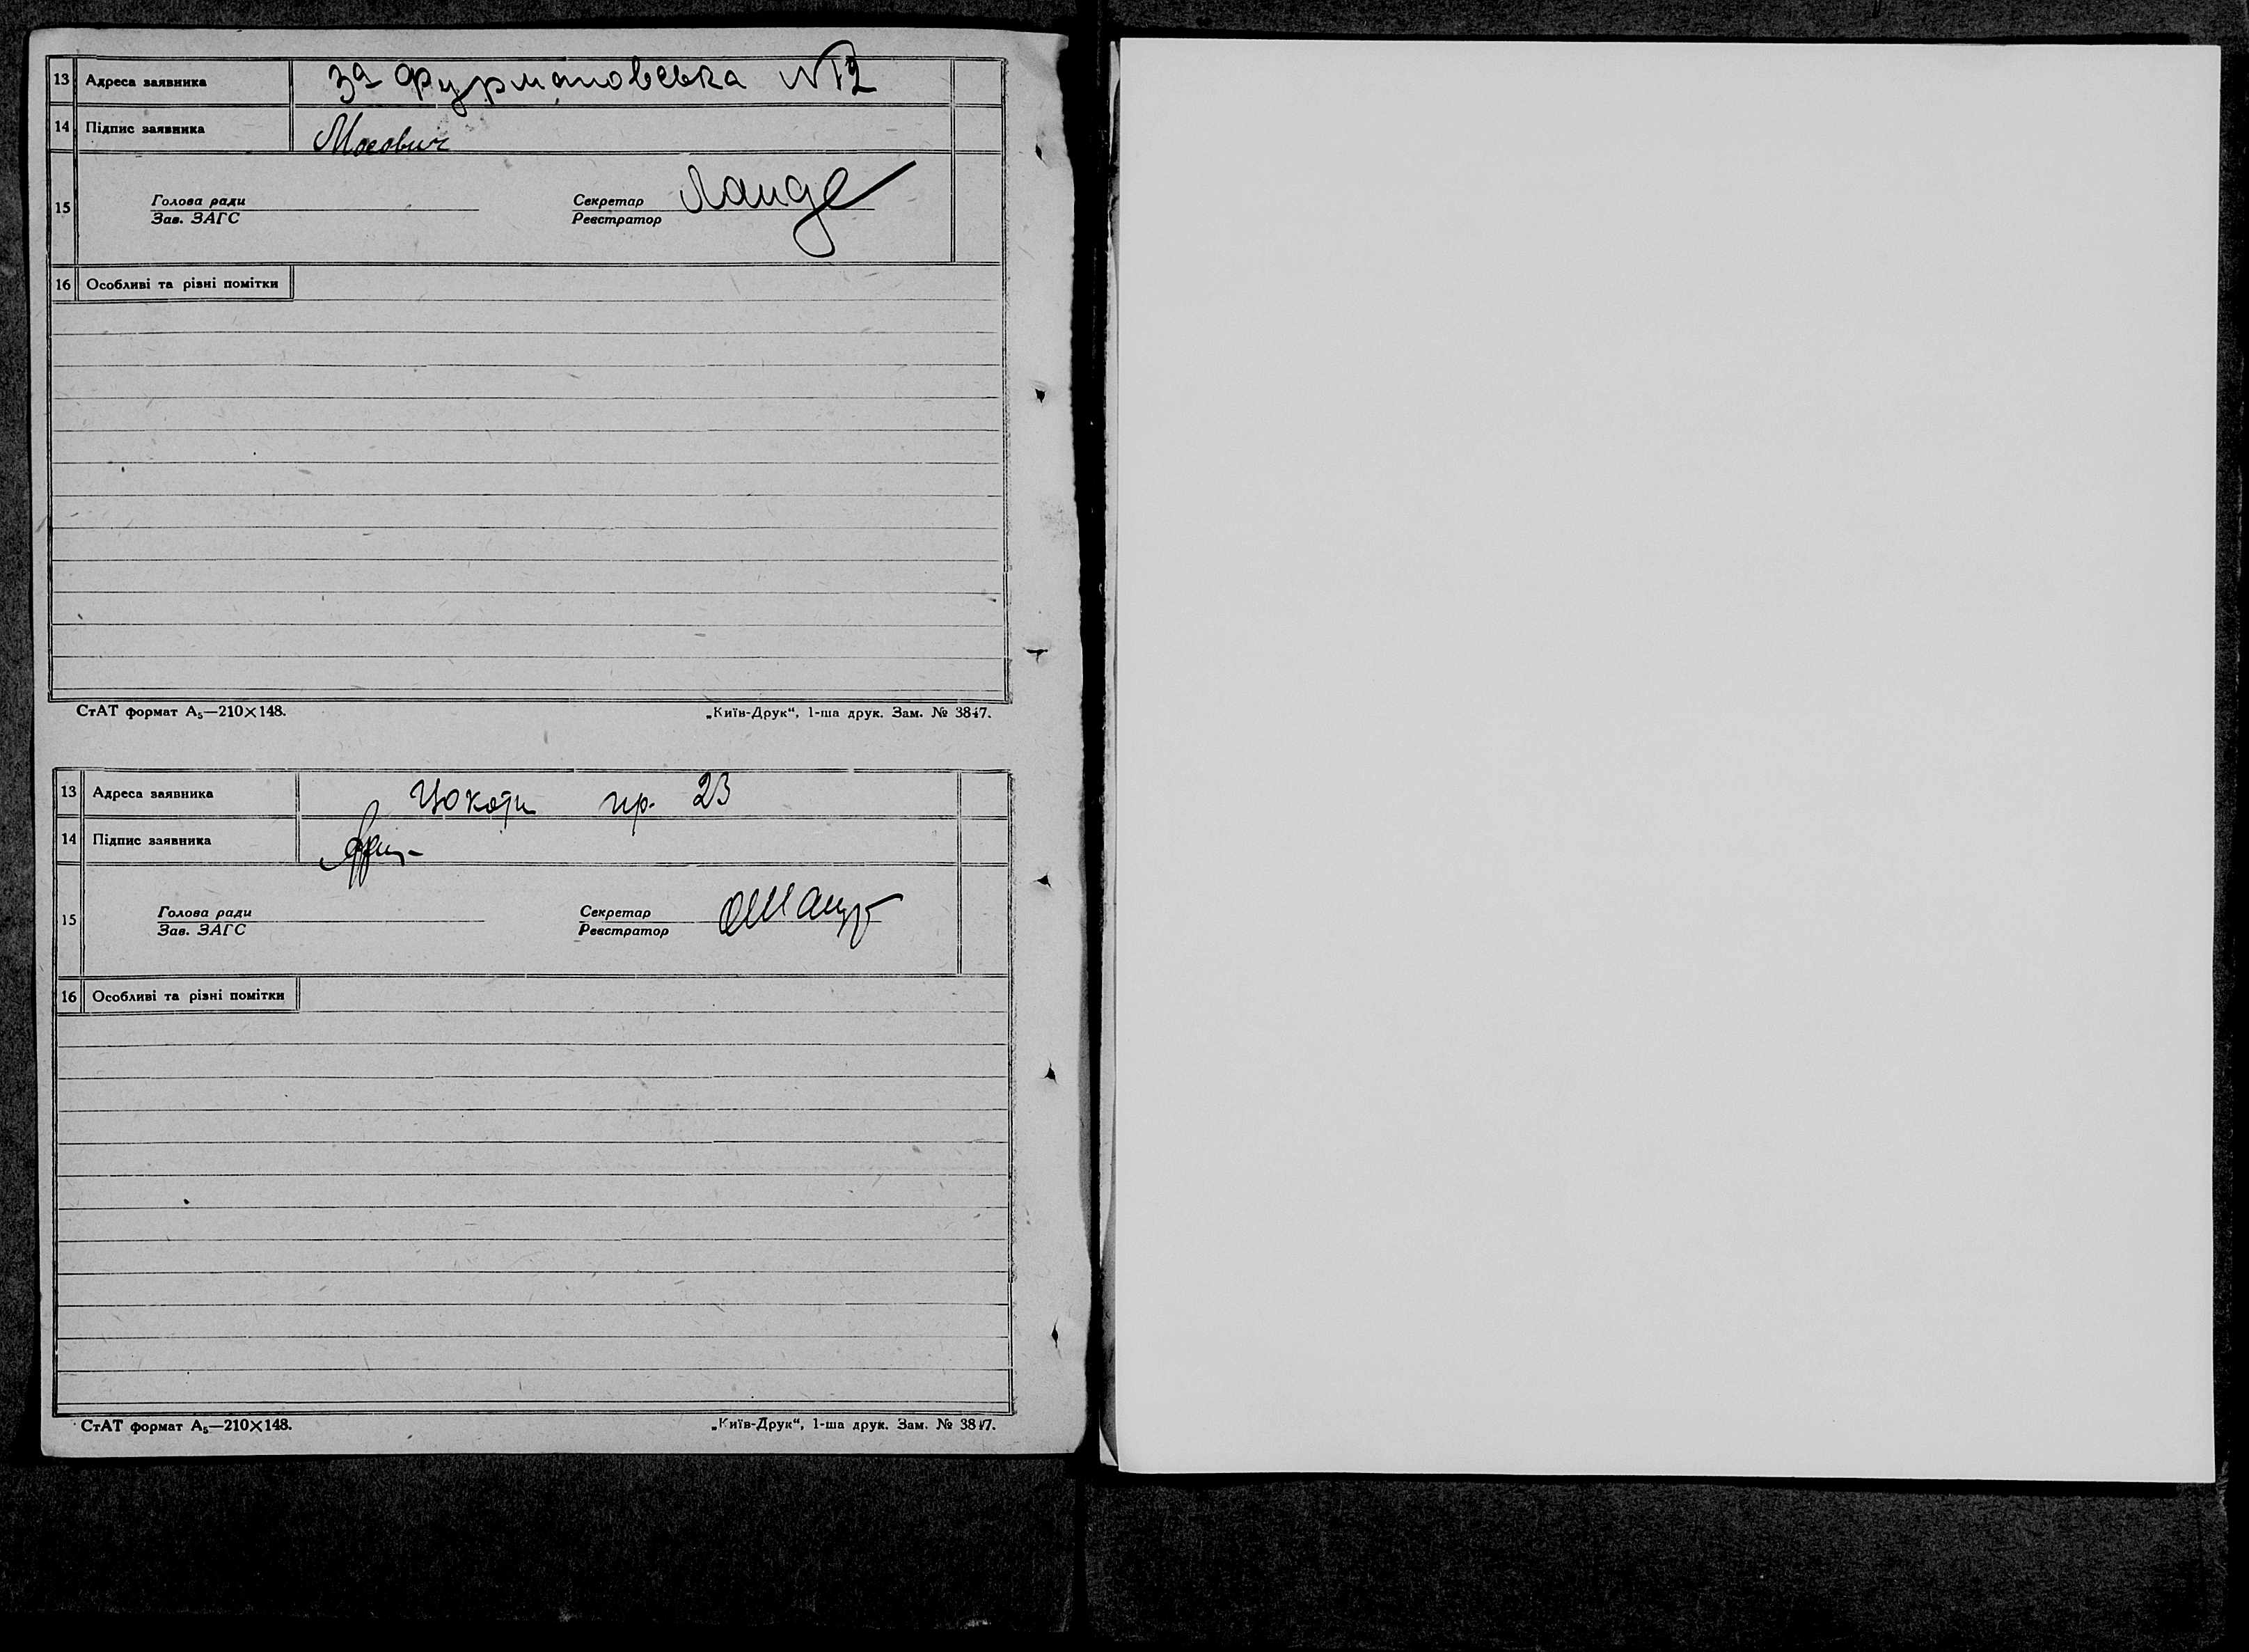 13 Адреса заявника За Фурмановська №12
14 Підпис заявника Мосович
15 Голова ради Секретар
Зав. ЗАГС Реєстратор
16 Особливі та різні помітки
СтАТ формат А₅—210×148. „Київ-Друк“, 1-ша друк. Зам. № 3847.
13 Адреса заявника пр. 23
14 Підпис заявника
15 Голова ради Секретар
Зав. ЗАГС Реєстратор
16 Особливі та різні помітки
СтАТ формат А₅—210×148. „Київ-Друк“, 1-ша друк. Зам. № 3847.